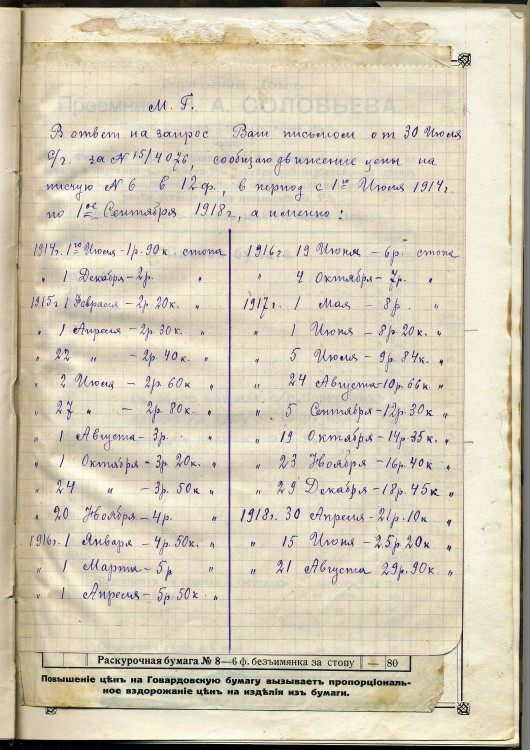 М. Г.
В ответ на запрос Ваш письмом от 30 Июля
с/г. за № 15/4076, сообщаю движение цены на
писчую № 6 в 12 ф., в период с 1го Июля 1914 г.
по 1ое Сентября 1918 г., а именно:
1914г. 1го Июля - 1р. 90к. стопа
" 1 Декабря - 2р. "
1915г. 1 Февраля - 2р. 20к. "
" 1 Апреля - 2р. 30к. "
" 22 " - 2р. 40к. "
" 2 Июля - 2р. 60к "
" 27 " - 2р. 80к. "
" 1 Августа - 3р. "
" 1 Октября - 3р. 20к. "
" 24 " - 3р. 50к "
" 20 Ноября - 4р. "
1916г. 1 Января - 4р. 50к. "
" 1 Марта - 5р "
" 1 Апреля - 5р. 50к "
1916г. 19 Июня - 6р. стопа
" 4 Октября - 7р. "
1917г. 1 Мая - 8р. "
" 1 Июня - 8р. 20к. "
" 5 Июля - 9р. 84к. "
" 24 Августа - 10р. 66к "
" 5 Сентября - 12р. 30к "
" 19 Октября - 14р. 35к. "
" 23 Ноября - 16р. 40к "
" 29 Декабря - 18р. 45к "
1918г. 30 Апреля - 21р. 10к "
" 15 Июня - 25р. 20к "
" 21 Августа 29р. 90к. "
Раскурочная бумага № 8—6 ф. безъимянка за стопу — 80
Повышеніе цѣнъ на Говардовскую бумагу вызываетъ пропорціональ-
ное вздорожаніе цѣнъ на издѣлія изъ бумаги.